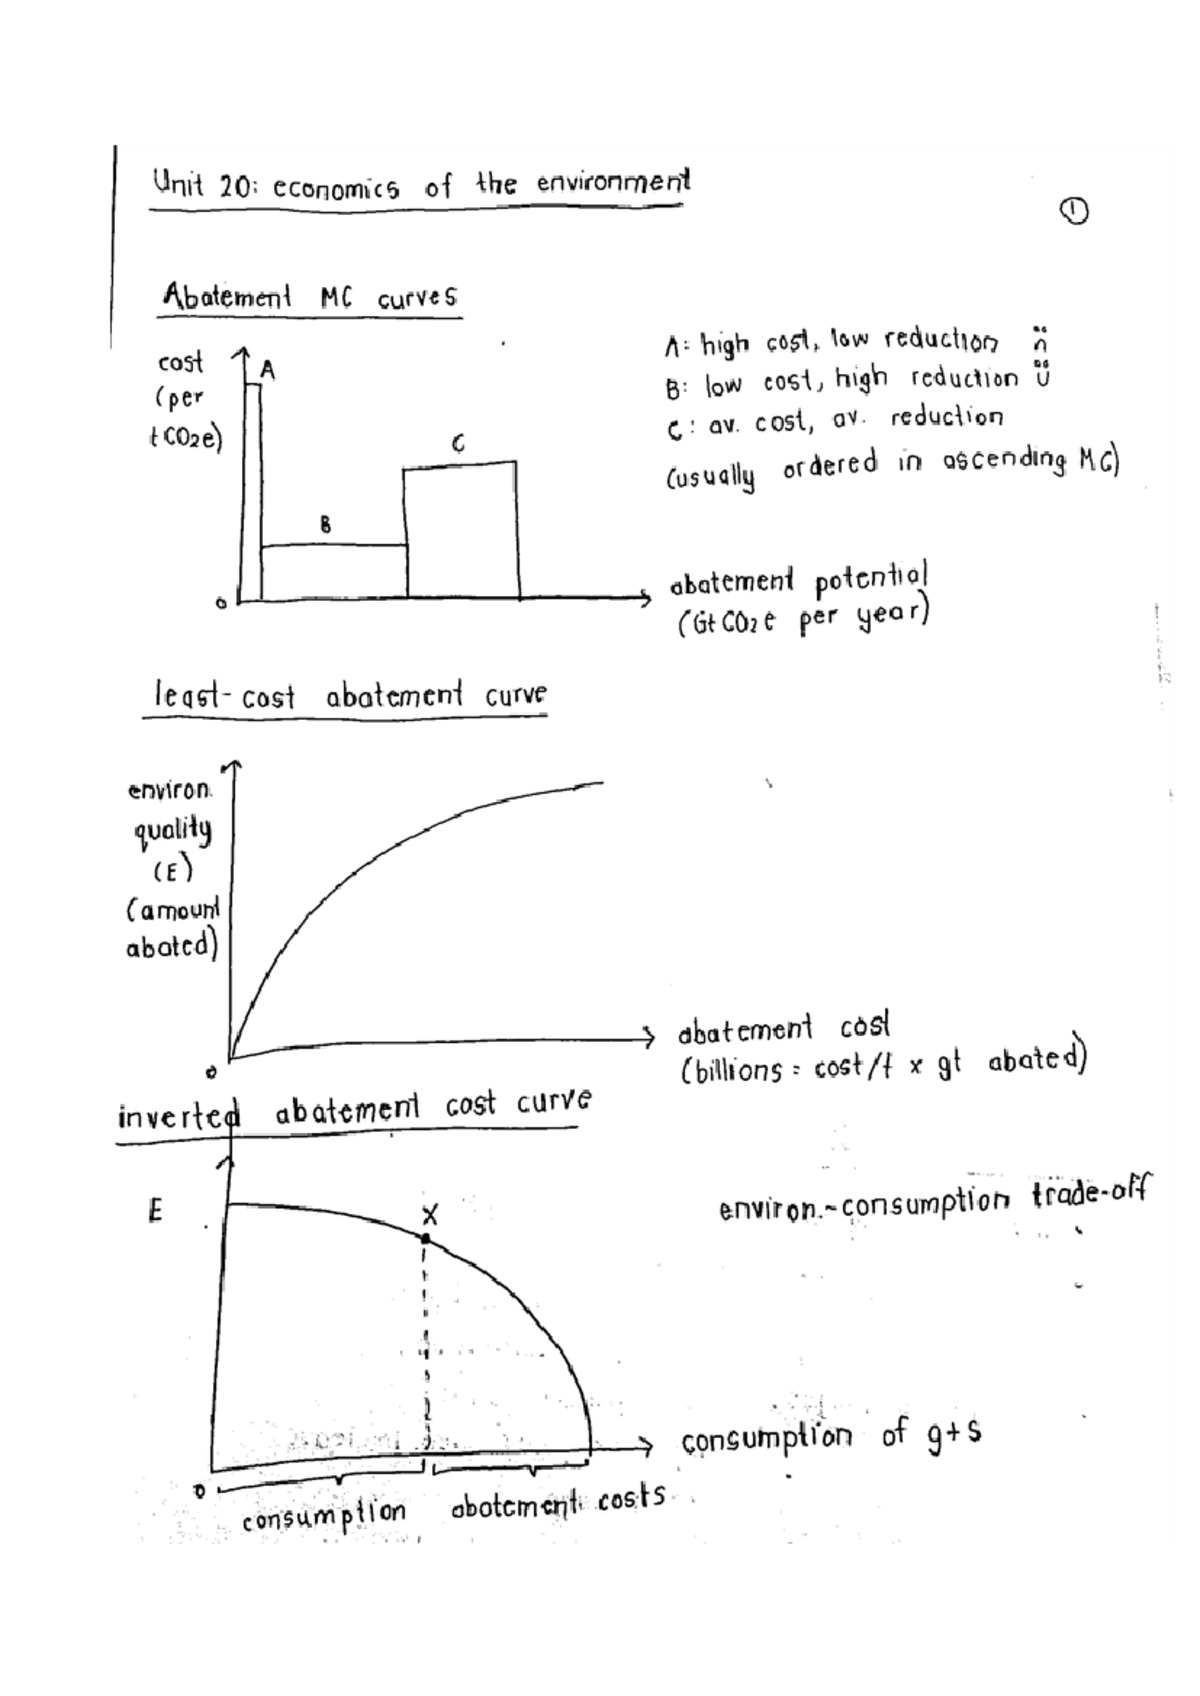 Unit 20: economics of the environment
1
Abatement MC curves
cost
(per
tCO2e)
A
B
C
0
A: high cost, low reduction n̈
B: low cost, high reduction Ü
C: av. cost, av. reduction
(usually ordered in ascending MC)
abatement potential
(GtCO2e per year)
least-cost abatement curve
environ.
quality
(E)
(amount
abated)
0
abatement cost
(billions = cost/t x gt abated)
inverted abatement cost curve
E
X
environ.-consumption trade-off
0
consumption of g+s
consumption
abatement costs